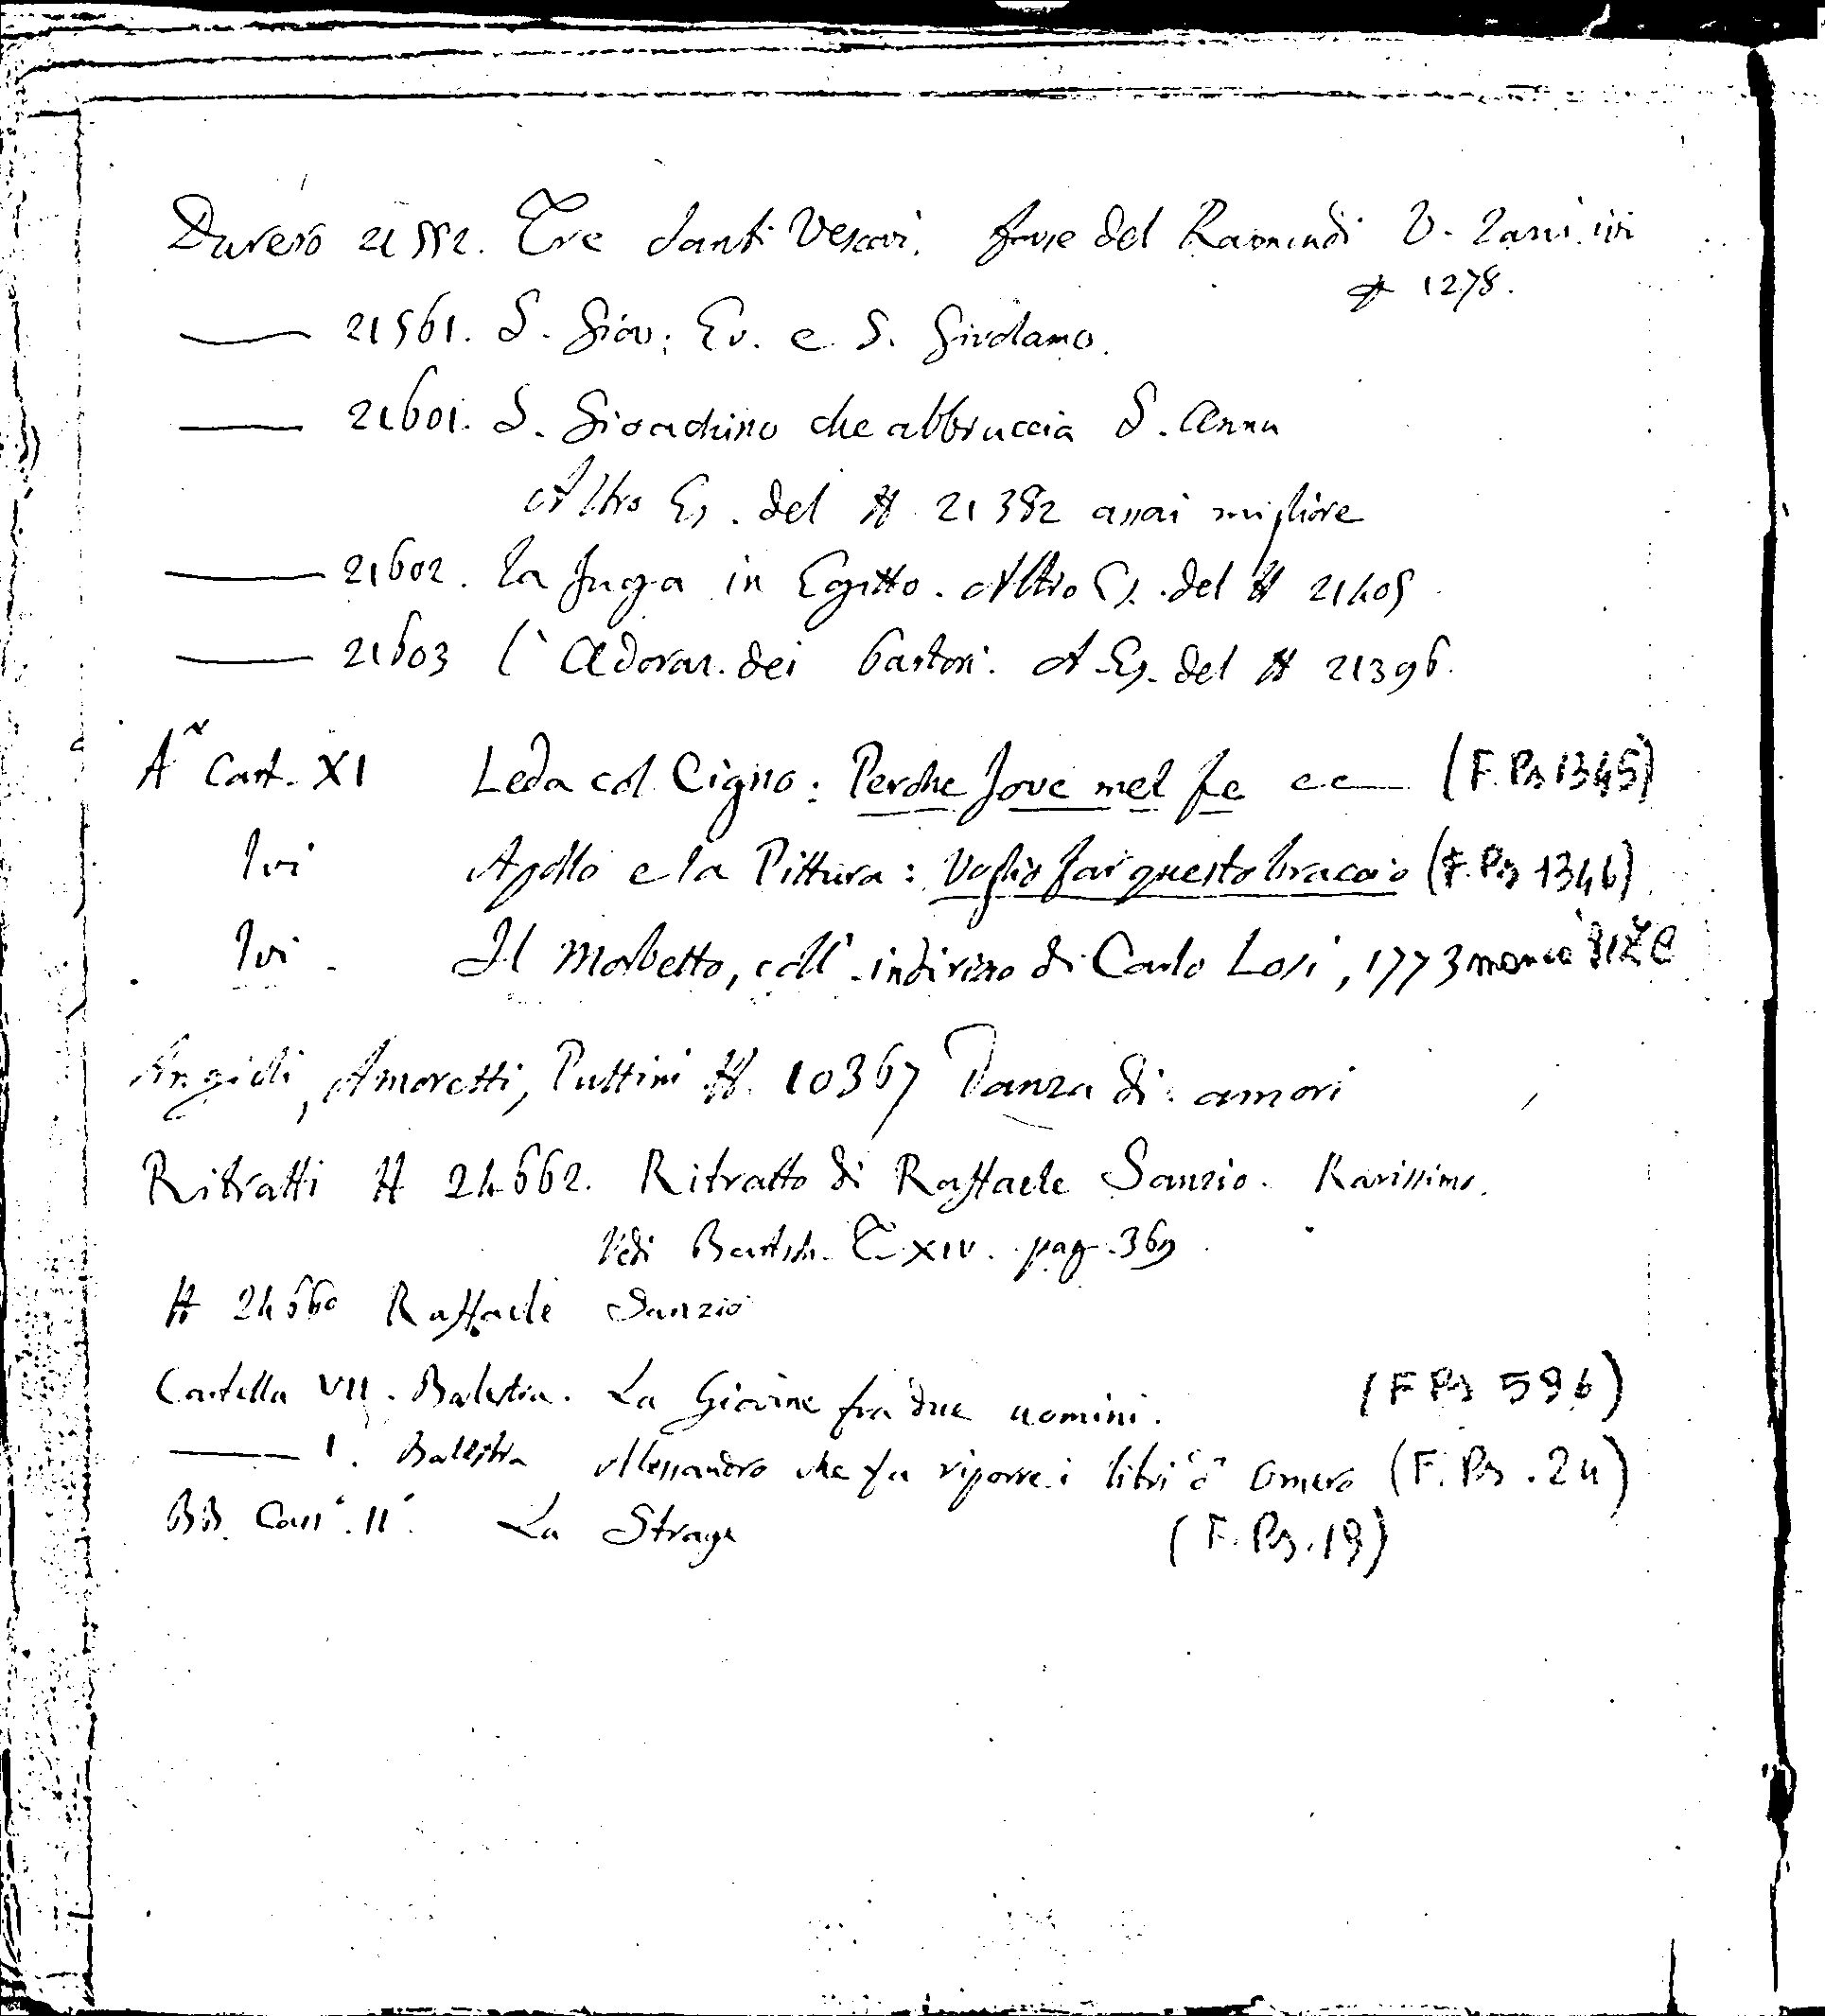 Durero 21552. Tre Santi Vescovi. forse del Raimondi V. Zani. ivi
# 1278.
—— 21561. S. Giov: Ev. e S. Girolamo.
—— 21601. S. Gioachino che abbruccia S. Anna
Altro Es. del # 21382 assai migliore
—— 21602. La fuga in Egitto. Altro Es. del # 21405
—— 21603 l'Adoraz. dei Pastori. A. Es. del # 21396.
Cart. XI Leda col Cigno: Perche Jove mel fe ec— (F. PN 1345)
Ivi Apollo e la Pittura: Voglio far questo braccio (F. PN 1346)
Ivi. Il Morbetto, coll'indirizzo di Carlo Losi, 1773
Angioli, Amoretti, Puttini # 10367 Danza di amori
Ritratti # 24662. Ritratto di Raffaele Sanzio. Rarissimo.
Vedi Bartsch. T. XIV. pag. 369
# 24660 Raffaele Sanzio
Cartella VII. Balestra. La Giovine fra due uomini. (F PN 596)
—— I. Balestra Alessandro che fa riporre i libri d'Omero (F. PN. 24)
BB. Cart. II. La Strage (F. PN. 19)